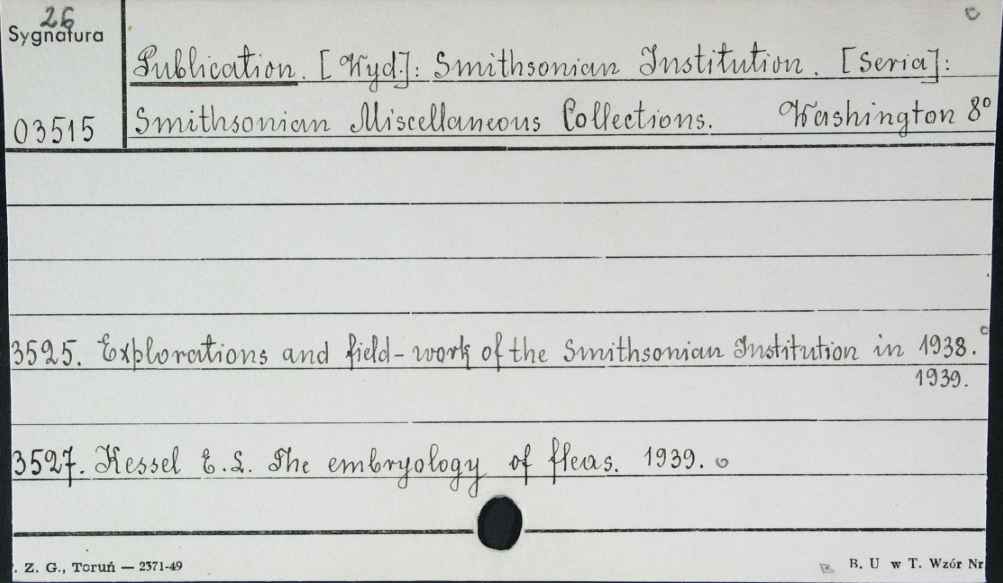 26
Sygnatura
Publication. [Wyd.]: Smithsonian Institution. [Seria]:
03515 Smithsonian Miscellaneous Collections. Washington 8°
3525. Explorations and field-work of the Smithsonian Institution in 1938.
1939.
3527. Kessel E.L. The embryology of fleas. 1939.
. Z. G., Toruń — 2371-49 B. U w T. Wzór Nr